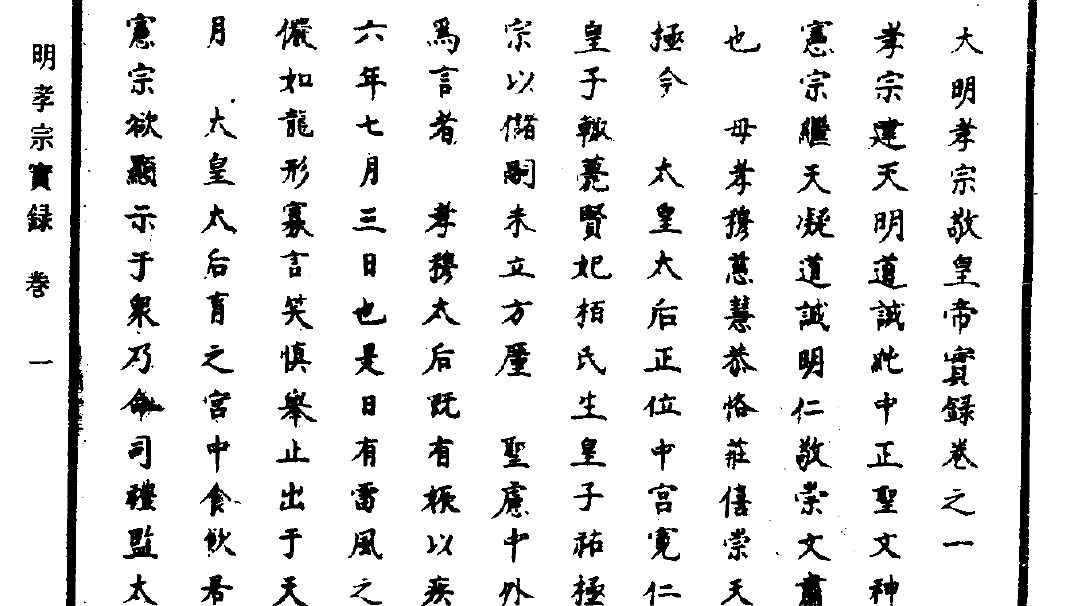 大明孝宗敬皇帝實録卷之一
孝宗建天明道誠純中正聖文神
憲宗繼天凝道誠明仁敬崇文肅
也　母孝穆慈慧恭恪莊僖崇天
極今　太皇太后正位中宮寬仁
皇子輙薨賢妃栢氏生皇子祐極
宗以儲嗣未立方厪　聖慮中外
為言者　孝穆太后既有娠以疾
六年七月三日也是日有雷風之
儼如龍形寡言笑慎舉止出于天
月　太皇太后育之宮中食飲居
憲宗欲顯示于衆乃命司禮監太
明孝宗實録　卷一